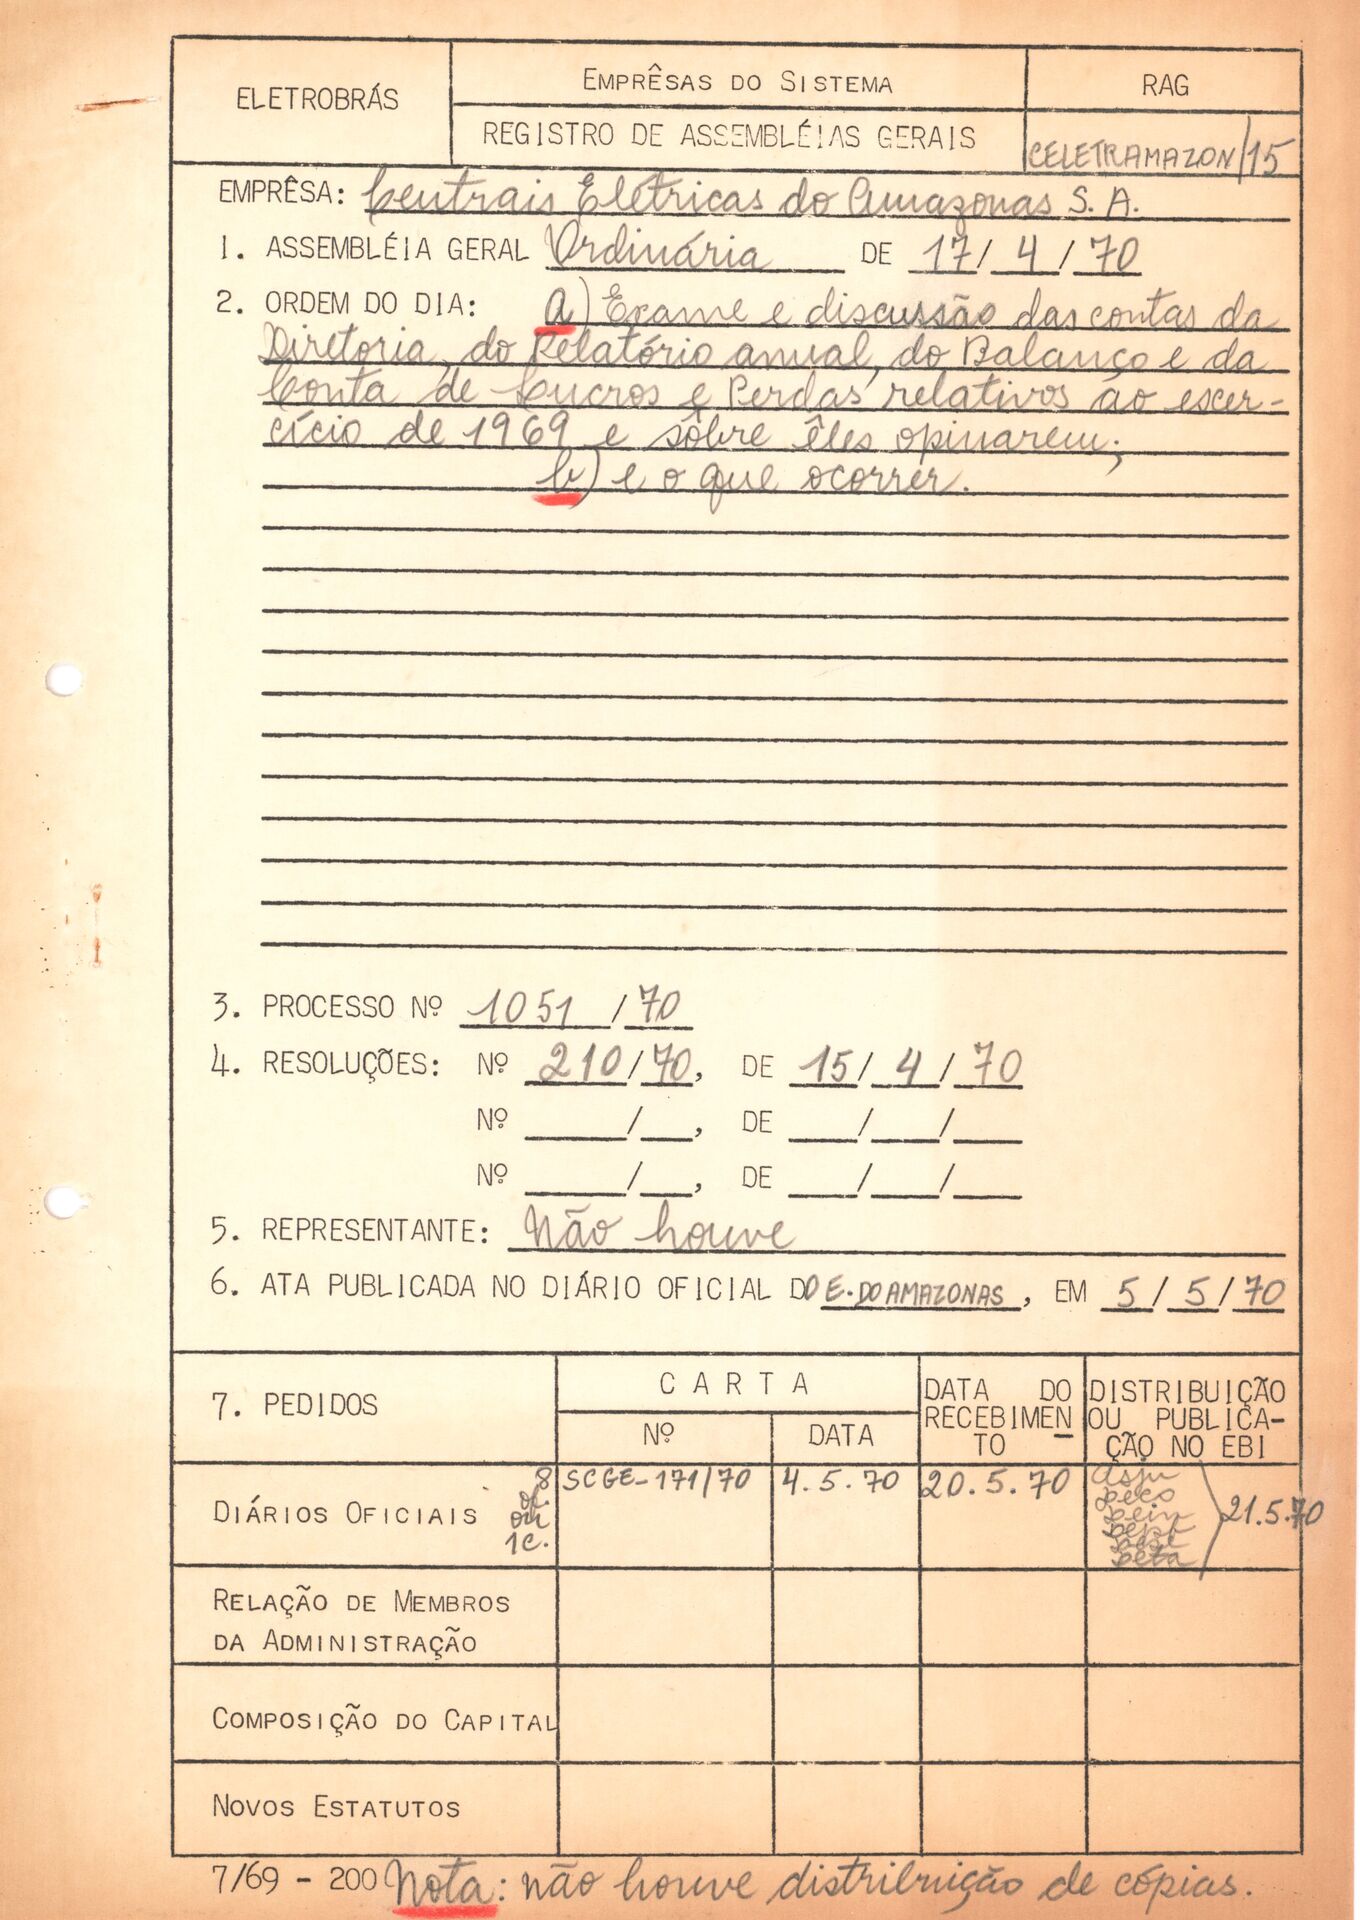 ELETROBRÁS
EMPRÊSAS DO SISTEMA
RAG
REGISTRO DE ASSEMBLÉIAS GERAIS
CELETRAMAZON/15
EMPRÊSA: Centrais Elétricas do Amazonas S. A.
1. ASSEMBLÉIA GERAL Ordinária DE 17/4/70
2. ORDEM DO DIA: a) Exame e discussão das contas da
Diretoria, do Relatório anual, do Balanço e da
Conta de Lucros e Perdas relativos ao escer-
cício de 1969 e sôbre êles opinarem;
b) e o que ocorrer.
3. PROCESSO Nº 1051/70
4. RESOLUÇÕES: Nº 210/70, DE 15/4/70
Nº ____/___, DE ___/___/___
Nº ____/___, DE ___/___/___
5. REPRESENTANTE: Não houve
6. ATA PUBLICADA NO DIÁRIO OFICIAL DO E. DO AMAZONAS, EM 5/5/70
7. PEDIDOS
CARTA
Nº
DATA
DATA DO
RECEBIMEN
TO
DISTRIBUIÇÃO
OU PUBLICA-
ÇÃO NO EBI
DIÁRIOS OFICIAIS
8
1c.
SCGE-171/70
4.5.70
20.5.70
21.5.70
RELAÇÃO DE MEMBROS
DA ADMINISTRAÇÃO
COMPOSIÇÃO DO CAPITAL
NOVOS ESTATUTOS
7/69 - 200
Nota: não houve distribuição de cópias.